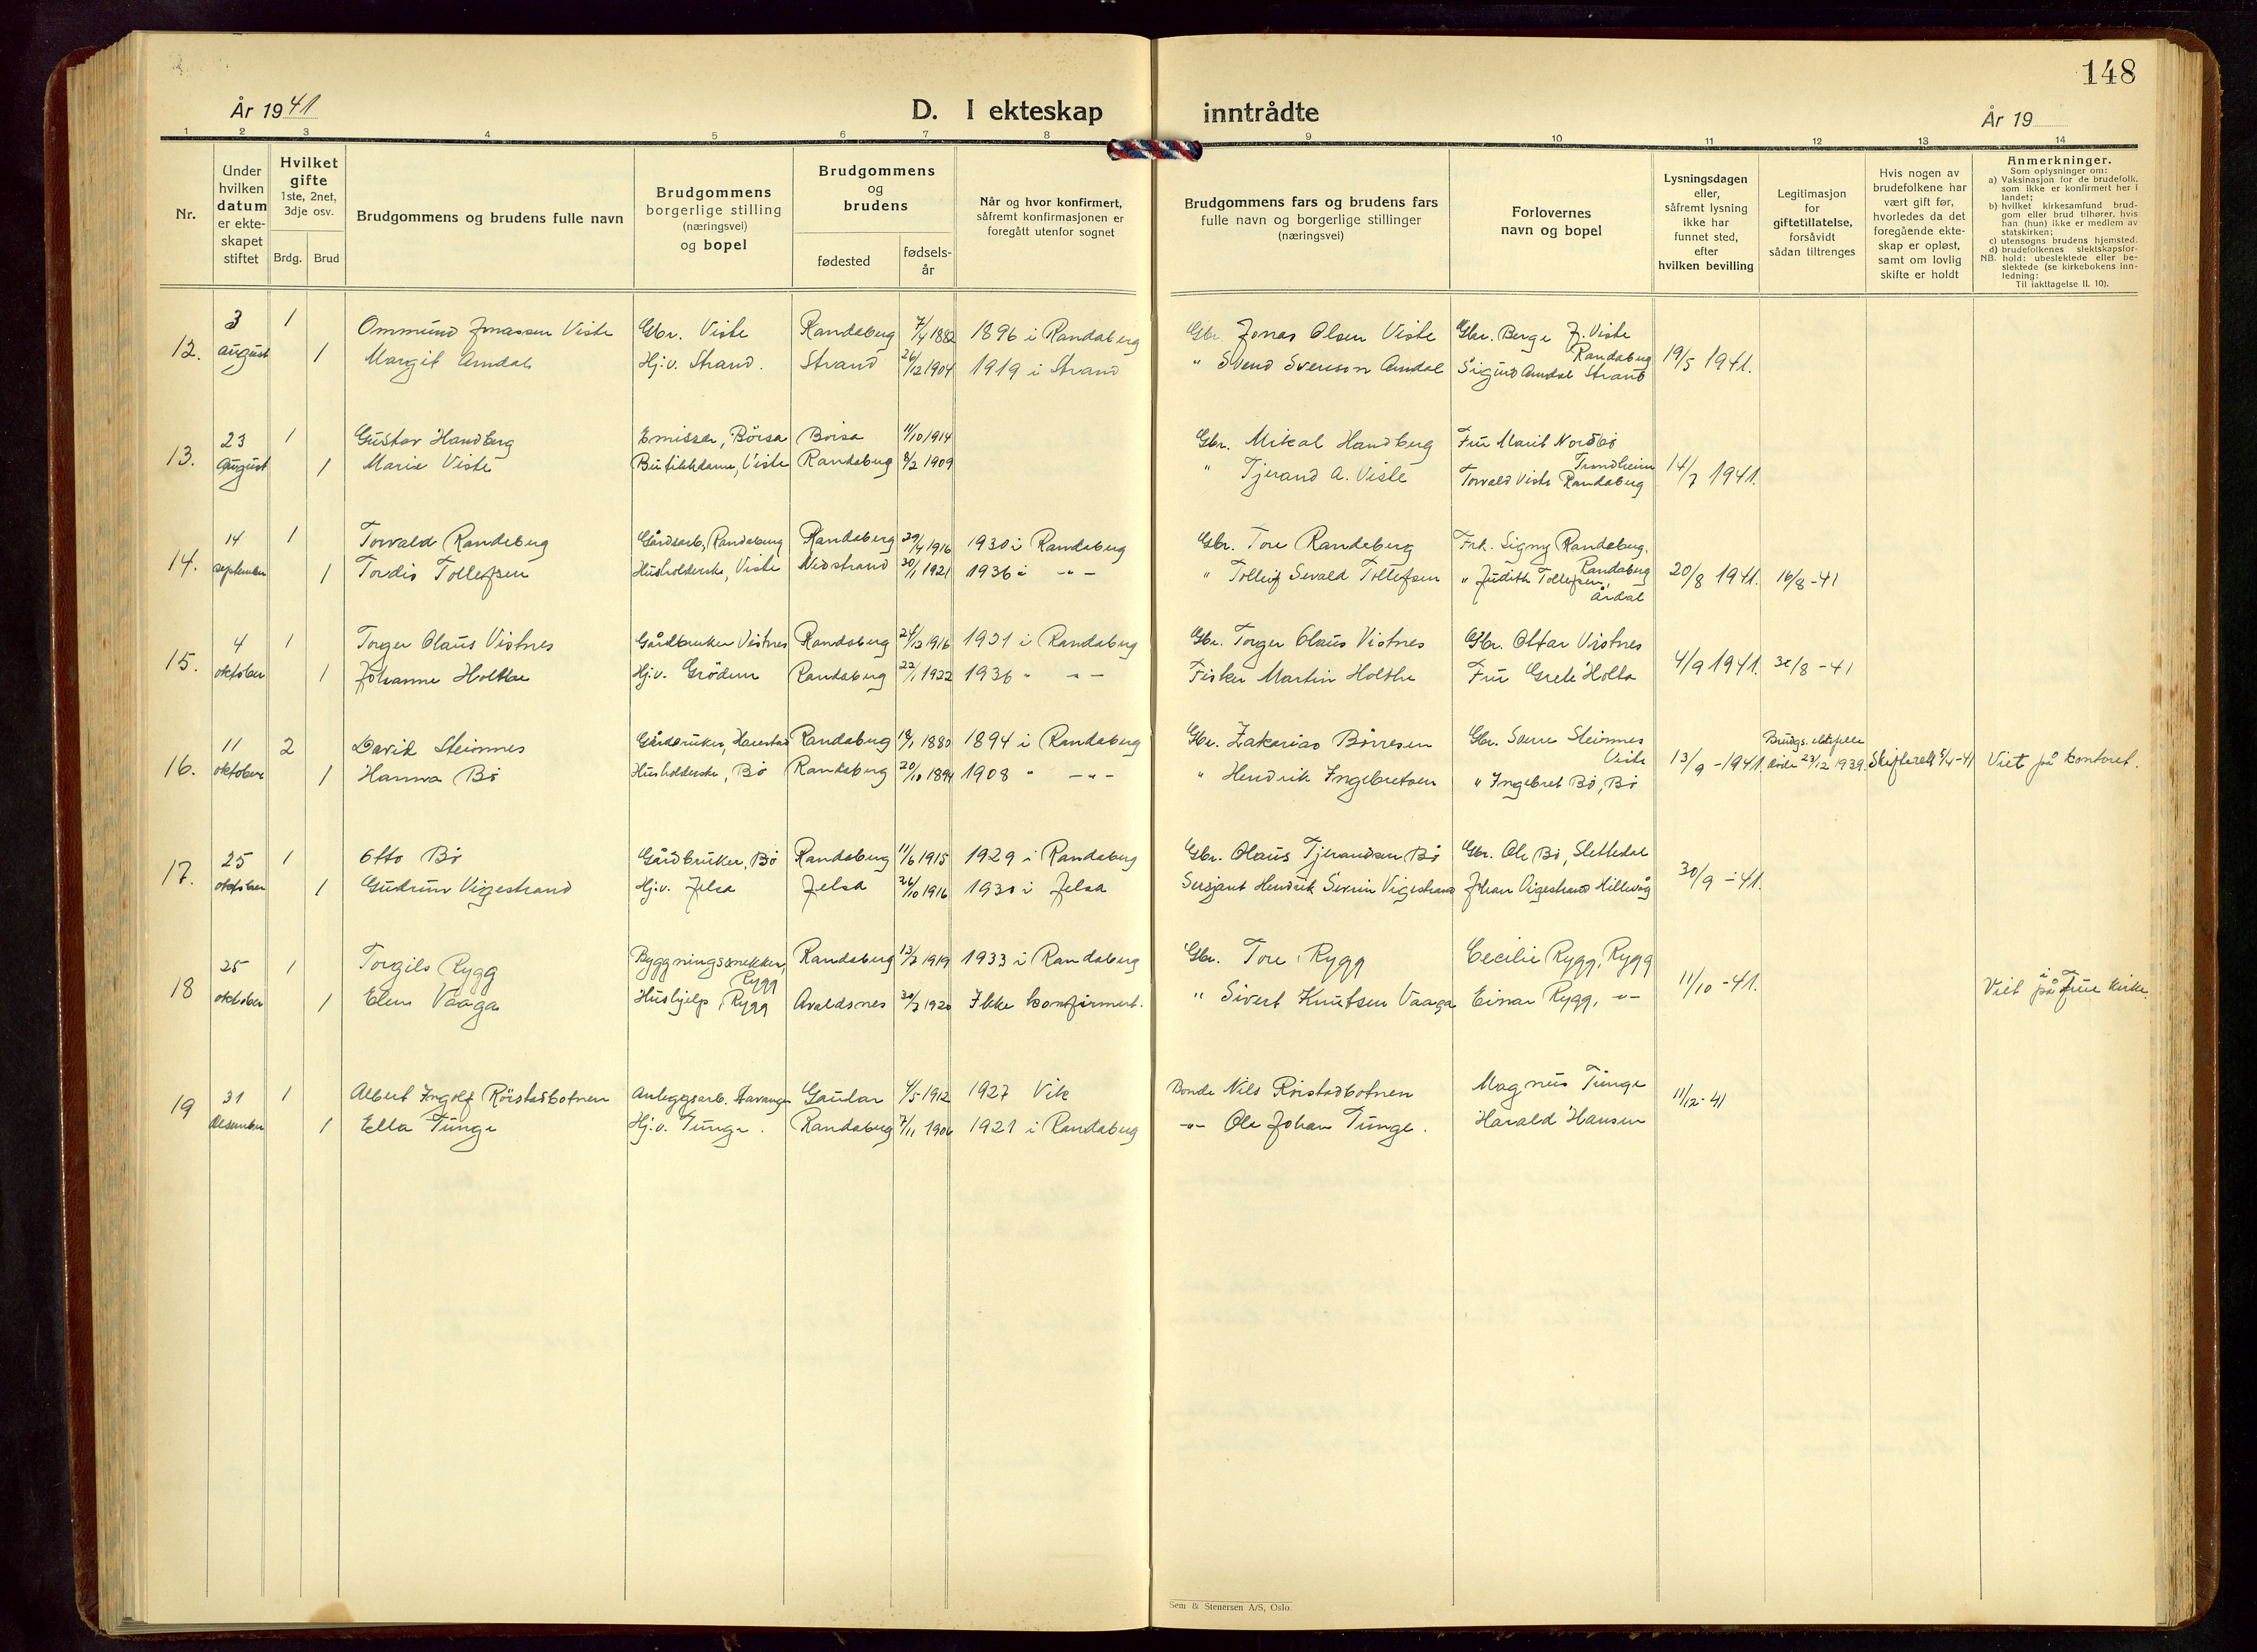 148
År 1941
D. I ekteskap inntrådte
År 19
1 2 3 4 5 6 7 8 9 10 11 12 13 14
Nr.
Under hvilken datum er ekteskapet stiftet
Hvilket gifte 1ste, 2net, 3dje osv.
Brdg. Brud
Brudgommens og brudens fulle navn
Brudgommens borgerlige stilling (næringsvei) og bopel
Brudgommens og brudens
fødested
fødsels-år
Når og hvor konfirmert, såfremt konfirmasjonen er foregått utenfor sognet
Brudgommens fars og brudens fars fulle navn og borgerlige stillinger (næringsvei)
Forlovernes navn og bopel
Lysningsdagen eller, såfremt lysning ikke har funnet sted, efter hvilken bevilling
Legitimasjon for giftetillatelse, forsåvidt sådan tiltrenges
Hvis nogen av brudefolkene har vært gift før, hvorledes da det foregående ekteskap er opløst, samt om lovlig skifte er holdt
Anmerkninger.
Som oplysninger om:
a) Vaksinasjon for de brudefolk, som ikke er konfirmert her i landet;
b) hvilket kirkesamfund brudgom eller brud tilhører, hvis han (hun) ikke er medlem av statskirken;
c) utensogns brudens hjemsted.
d) brudefolkenes slektskapsforhold: ubeslektede eller beslektede (se kirkebokens innledning:
NB.
Til iakttagelse II. 10).
12. 3 august 1 Ommund Jonassen Viste Gbr. Viste Randaberg 7/4 1882 1896 i Randaberg Gbr. Jonas Olsen Viste Gbr. Berge J. Viste Randaberg 19/5 1941.
1 Margit Amdal Hj.v. Strand. Strand 26/12 1904 1919 i Strand " Svend Svenson Amdal Sigurd Amdal Strand
13. 23 August 1 Gustav Handberg Emissær, Börsa Börsa 11/10 1914 Gbr. Mikal Handberg Fru Marit Nordbö Trondheim 14/7 1941.
1 Marie Viste Butikkdame, Viste Randaberg 8/2 1909 " Tjerand A. Viste Torvald Viste Randaberg
14. 14 september 1 Torvald Randeberg Gårdsarb, Randaberg Randaberg 29/4 1916 1930 i Randaberg Gbr. Tore Randeberg Frk. Signy Randeberg, Randaberg 20/8 1941. 16/8 - 41
1 Tordis Tollefsen Husholderske, Viste Nedstrand 30/1 1921 1936 i -"- " Tolleif Sevald Tollefsen " Judith Tollefsen, Årdal
15. 4 oktober 1 Torger Olaus Vistnes Gårdbruker Vistnes Randaberg 24/12 1916 1931 i Randaberg Gbr. Torger Olaus Vistnes Gbr. Ottar Vistnes 4/9 1941. 30/8 - 41
1 Johanne Holthe Hj.v. Grödem Randaberg 22/1 1922 1936 " -"- Fisker Martin Holthe Fru Grete Holta
16. 11 oktober 2 David Steinnes Gårdbruker, Harestad Randaberg 18/1 1880 1894 i Randaberg Gbr. Zakarias Börresen Gbr. Sverre Steinnes Viste 13/9 - 1941. Brudgs. ektefelle döde 23/12 1939. Skifterett 5/4-41 Viet på kontoret.
1 Hanna Bö Husholderske, Bö Randaberg 20/10 1894 1908 " -"- " Hendrik Ingebretsen " Ingebret Bö, Bö
17. 25 oktober 1 Otto Bö Gårdbruker, Bö Randaberg 11/6 1915 1929 i Randaberg Gbr. Olaus Tjerandsen Bö Gbr. Ole Bö, Slettedal 30/9 - 41.
1 Gudrun Vigestrand Hj.v. Jelsa Jelsa 26/10 1916 1930 i Jelsa Sersjant Hendrik Severin Vigestrand Johan Vigestrand Hillevåg
18 25 oktober 1 Torgils Rygg Byggningssnekker, Rygg Randaberg 13/2 1919 1933 i Randaberg Gbr. Tore Rygg Cecilie Rygg, Rygg 11/10 - 41. Viet på i Frue kirke.
1 Elen Vaaga Hushjelp, Rygg Avaldsnes 30/7 1920 Ikke konfirmert. " Sivert Knutsen Vaaga Einar Rygg, -"-
19 31 desember 1 Albert Ingolf Röistadbotnen Anleggsarb. Stavanger Gaular 4/5 1912 1927 Vik Bonde Nils Röistadbotnen Magnus Tunge 11/12 - 41
1 Ella Tunge Hj.v. Tunge. Randaberg 7/11 1906 1921 i Randaberg -"- Ole Johan Tunge. Harald Hansen
Sem & Stenersen A/S, Oslo.